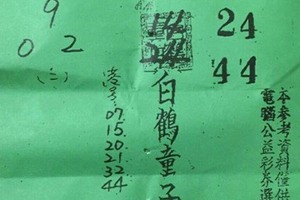 9
02
(三)
24
44
白鶴童子
07
15.
20.
21
32
44
本參考資料僅供
電腦公益彩券選